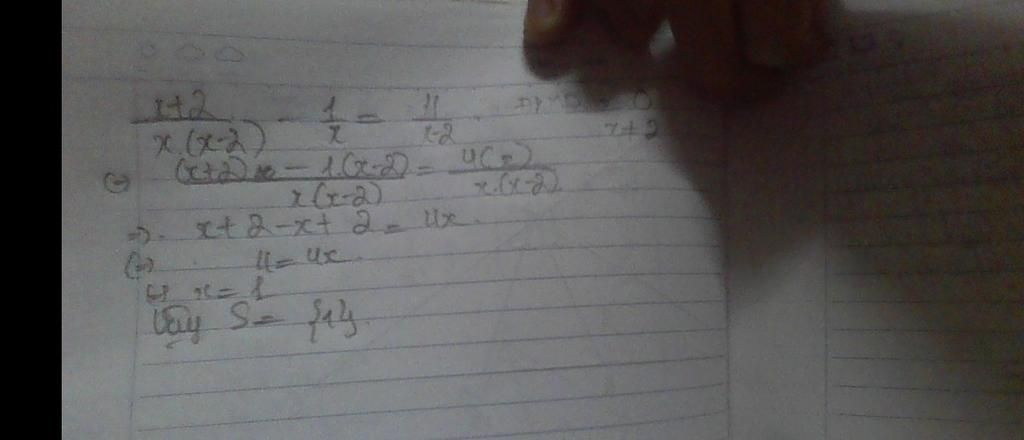 x+2/x.(x-2) - 1/x = 4/x-2
(=) (x+2) - 1.(x-2)/x(x-2) = 4(x)/x.(x-2)
=). x+2-x+2 = 4x.
(=) 4 = 4x.
(=) x = 1
Vậy S = {1}.